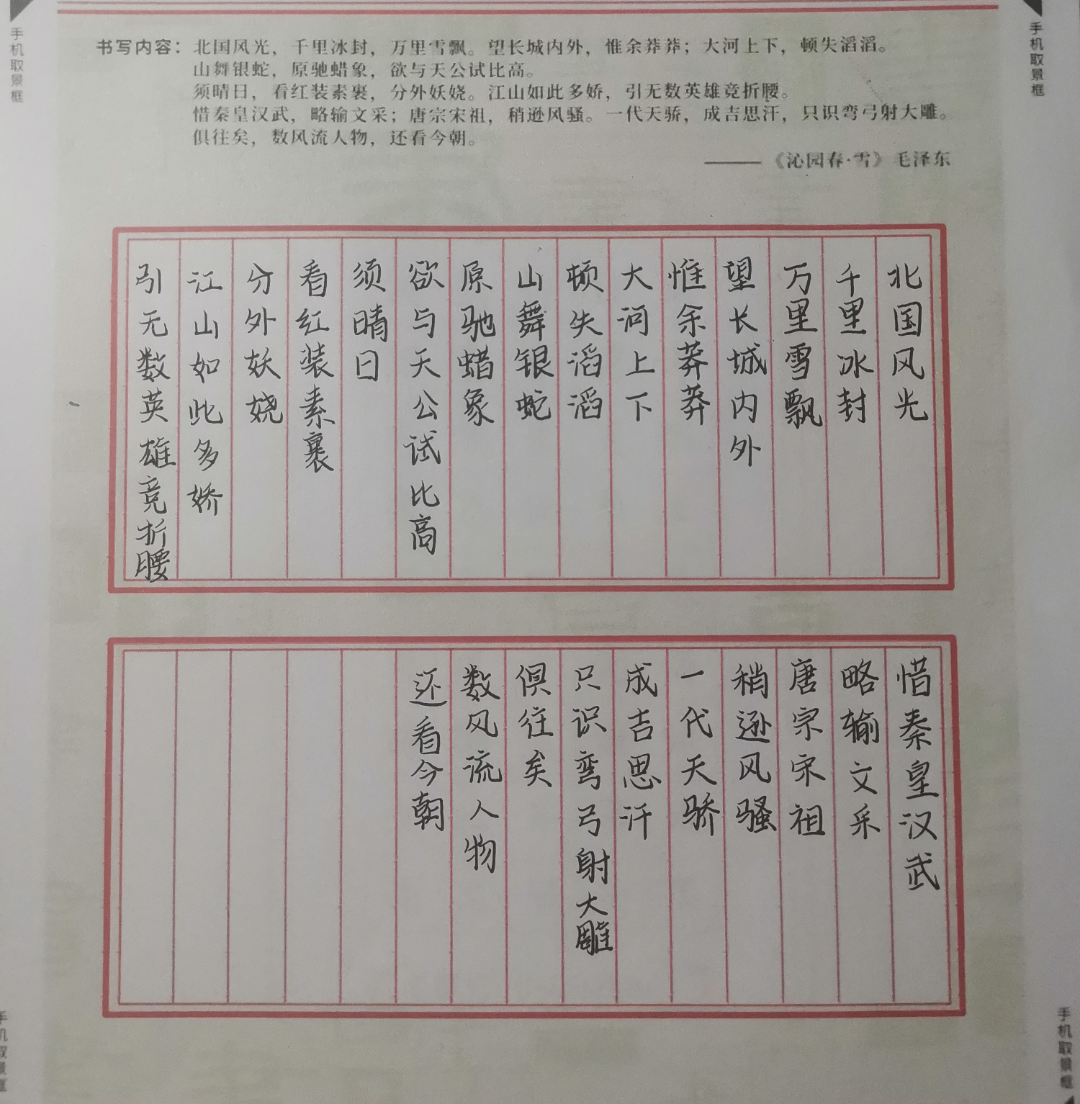 手机取景框
手机取景框
书写内容：北国风光，千里冰封，万里雪飘。望长城内外，惟余莽莽；大河上下，顿失滔滔。
山舞银蛇，原驰蜡象，欲与天公试比高。
须晴日，看红装素裹，分外妖娆。江山如此多娇，引无数英雄竞折腰。
惜秦皇汉武，略输文采；唐宗宋祖，稍逊风骚。一代天骄，成吉思汗，只识弯弓射大雕。
俱往矣，数风流人物，还看今朝。
——《沁园春·雪》毛泽东
北国风光
千里冰封
万里雪飘
望长城内外
惟余莽莽
大河上下
顿失滔滔
山舞银蛇
原驰蜡象
欲与天公试比高
须晴日
看红装素裹
分外妖娆
江山如此多娇
引无数英雄竞折腰
惜秦皇汉武
略输文采
唐宗宋祖
稍逊风骚
一代天骄
成吉思汗
只识弯弓射大雕
俱往矣
数风流人物
还看今朝
手机取景框
手机取景框